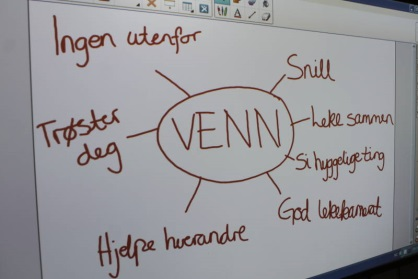 Ingen utenfor
Snill
Trøster
deg
VENN
Leke sammen
Si hyggelige ting
God lekekamerat
Hjelpe hverandre